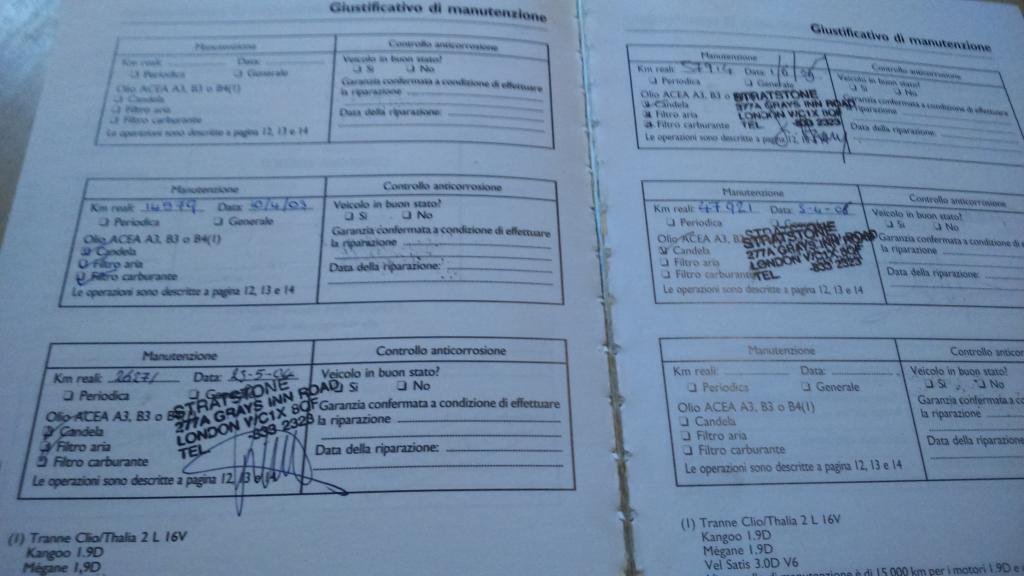 Giustificativo di manutenzione
Manutenzione
Km reali: Data:
❑ Periodica ❑ Generale
Olio ACEA A3, B3 o B4(1)
❑ Candela
❑ Filtro aria
❑ Filtro carburante
Le operazioni sono descritte a pagina 12, 13 e 14
Controllo anticorrosione
Veicolo in buon stato?
❑ Si ❑ No
Garanzia confermata a condizione di effettuare
la riparazione
Data della riparazione:
Manutenzione
Km reali: 14979 Data: 10/4/03
❑ Periodica ❑ Generale
Olio ACEA A3, B3 o B4(1)
Candela
Filtro aria
Filtro carburante
Le operazioni sono descritte a pagina 12, 13 e 14
Controllo anticorrosione
Veicolo in buon stato?
❑ Si ❑ No
Garanzia confermata a condizione di effettuare
la riparazione
Data della riparazione:
Manutenzione
Km reali: Data:
❑ Periodica
Olio ACEA A3, B3 o
Candela
Filtro aria
Filtro carburante
Le operazioni sono descritte a pagina 12,
STRATSTONE
277A GRAYS INN ROAD
LONDON WC1X 8QF
TEL 833 2323
Controllo anticorrosione
Veicolo in buon stato?
Si ❑ No
Garanzia confermata a condizione di effettuare
la riparazione
Data della riparazione:
(1) Tranne Clio/Thalia 2 L 16V
Kangoo 1.9D
Mégane 1,9D
Giustificativo di manutenzione
Manutenzione
Km reali: Data:
❑ Periodica
Olio ACEA A3, B3 o
Candela
Filtro aria
Filtro carburante
Le operazioni sono descritte a pagina 12,
STRATSTONE
277A GRAYS INN ROAD
LONDON WC1X 8QF
TEL 833 2323
Controllo anticorrosione
Veicolo in buon stato?
❑ Si ❑ No
Garanzia confermata a condizione di effettuare
riparazione
Data della riparazione:
Manutenzione
Km reali: 47921 Data:
❑ Periodica
Olio ACEA A3,
Candela
❑ Filtro aria
❑ Filtro carburante
Le operazioni sono descritte a pagina 12, 13 e 14
STRATSTONE
277A GRAYS INN ROAD
LONDON WC1X 8QF
TEL 833 2323
Controllo anticorrosione
Veicolo in buon stato?
❑ Si ❑ No
Garanzia confermata a condizione di
la riparazione
Data della riparazione:
Manutenzione
Km reali: Data:
❑ Periodica ❑ Generale
Olio ACEA A3, B3 o B4(1)
❑ Candela
❑ Filtro aria
❑ Filtro carburante
Le operazioni sono descritte a pagina 12, 13 e 14
Controllo
Veicolo in buon stato?
❑ Si ❑ No
Garanzia confermata a
la riparazione
Data della riparazione:
(1) Tranne Clio/Thalia 2 L 16V
Kangoo 1.9D
Mégane 1.9D
Vel Satis 3.0D V6
di manutenzione è di 15 000 km per i motori 1.9D e